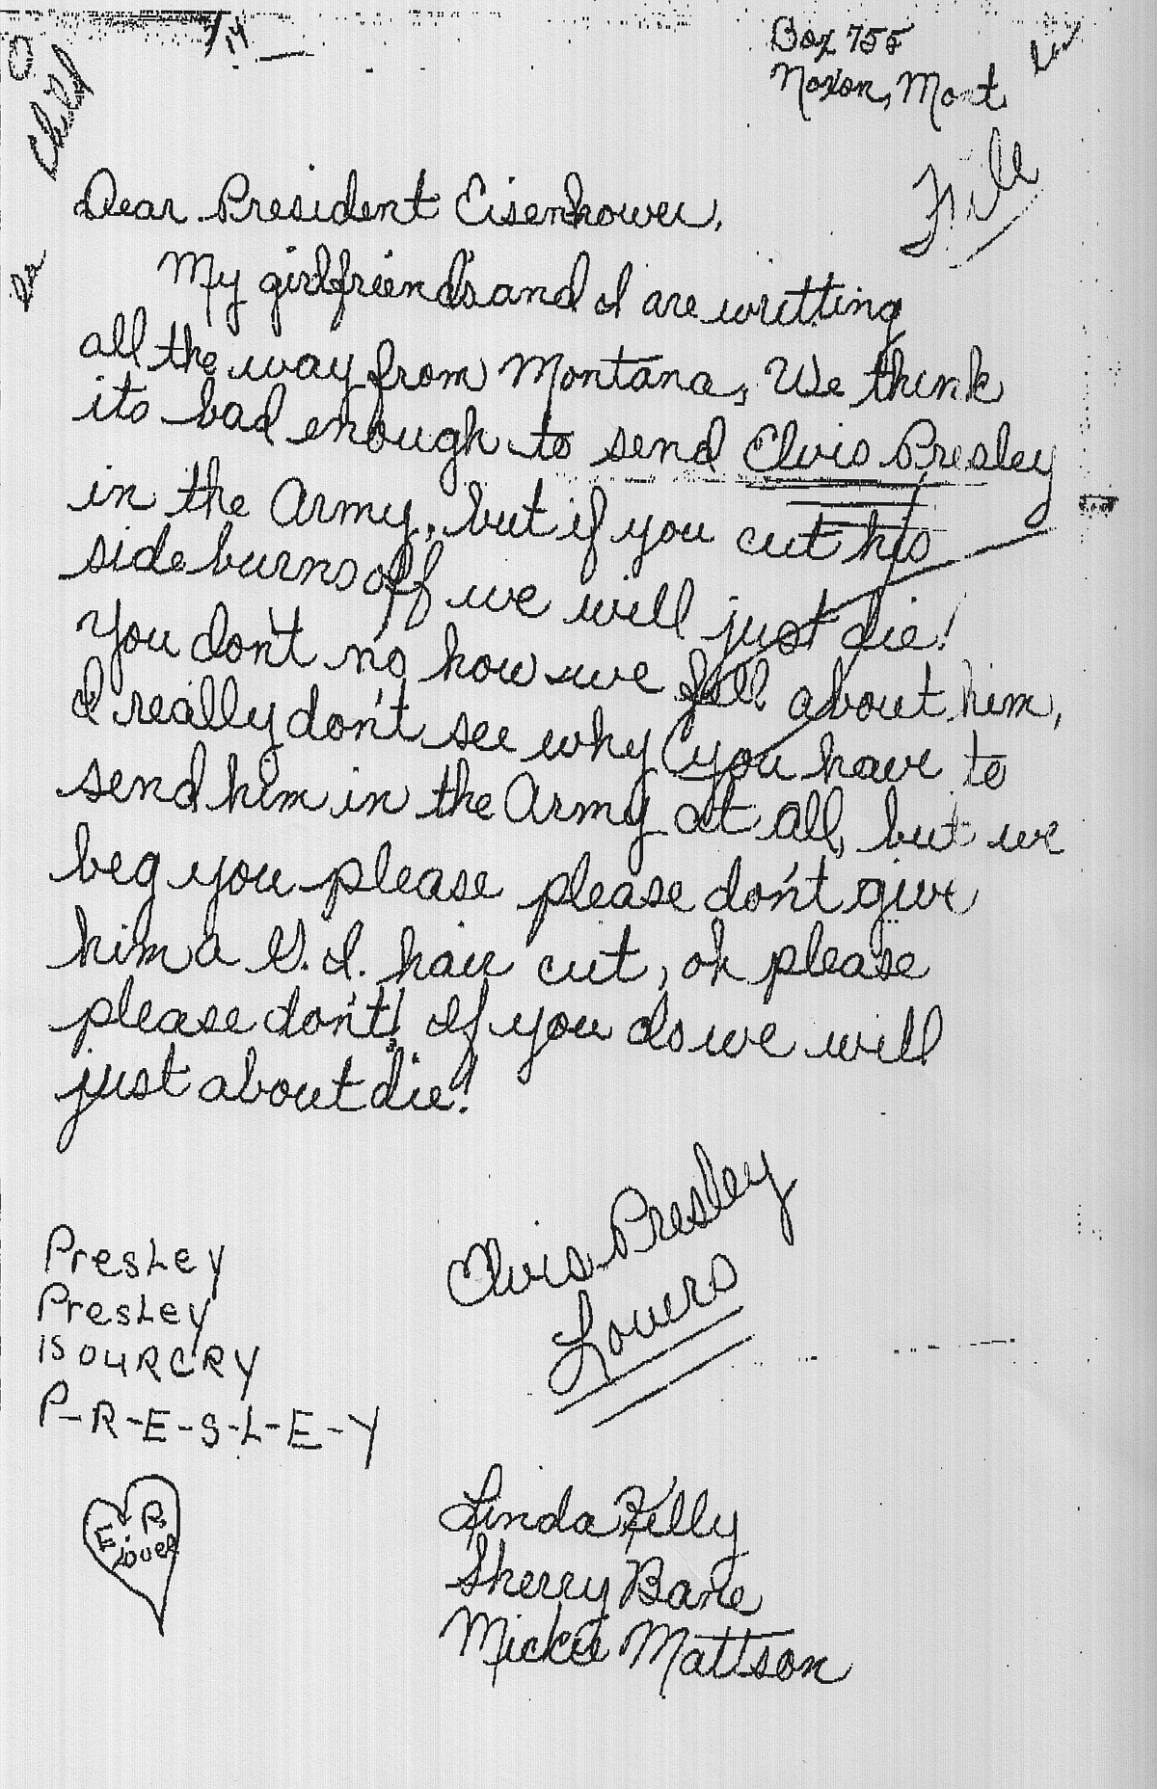 Box 755
Noxon, Mont
Child
File
Dear President Eisenhower,
My girlfriend's and I are writting
all the way from Montana, We think
its bad enough to send Elvis Presley
in the Army, but if you cut his
side burns off we will just die!
You don't no how we fell about him,
I really don't see why you have to
send him in the Army at all, but we
beg you please please don't give
him a G.I. hair cut, oh please
please don't! If you do we will
just about die!
Elvis Presley
Lovers
Presley
Presley
IS OUR CRY
P-R-E-S-L-E-Y
E. P.
Lover
Linda Kelly
Sherry Bane
Mickie Mattson